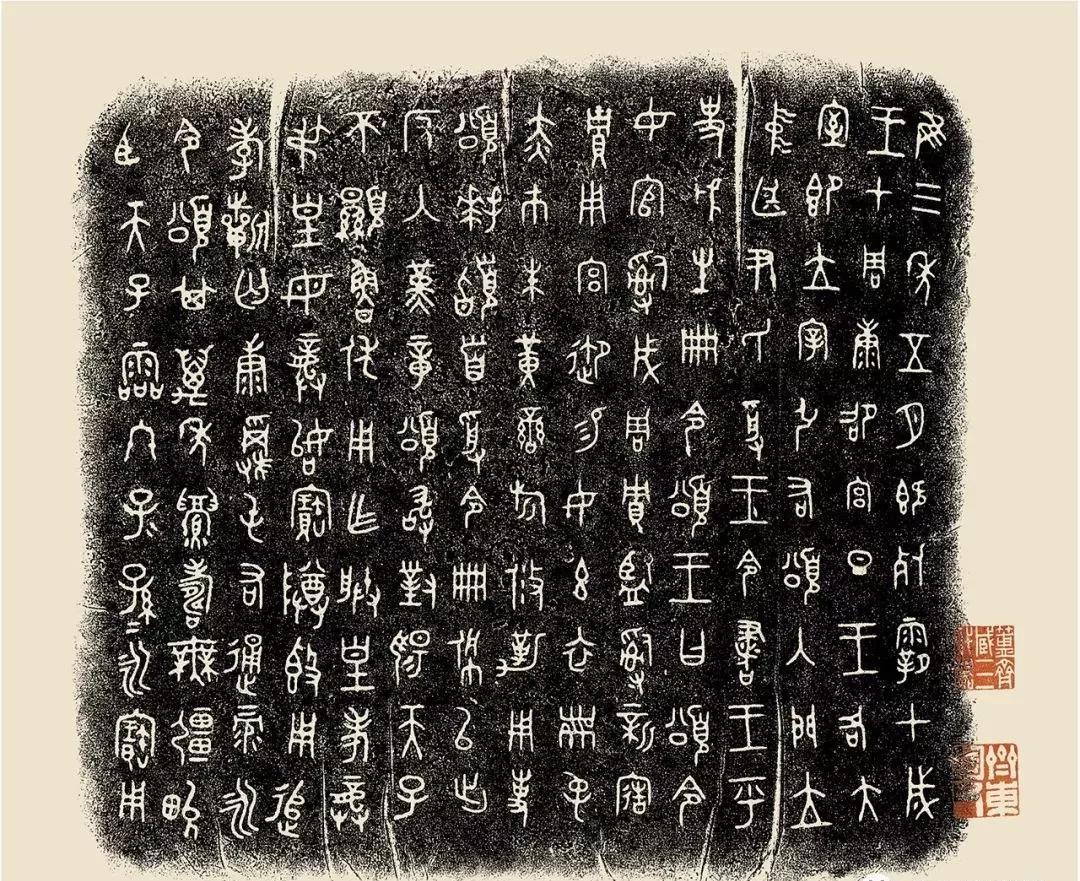 隹三年五月既死霸甲戌
王才周康卲宮旦王各大
室即立宰引右頌入門立
中廷尹氏受王令書王乎
史虢生冊令頌王曰頌令
女官𤔲成周貯監𤔲新造
貯用宮御易女玄衣黹屯
赤巿朱黃䜌旂攸勒用事
頌拜𩒨首受令冊佩以出
反入堇章頌敢對揚天子
不顯魯休用乍朕皇考龏
弔皇母龏始寶尊簋用追
孝𣄨匄康𩛥屯右通彔永
令頌其萬年眉壽無彊畯
臣天子霝冬子=孫=永寶用